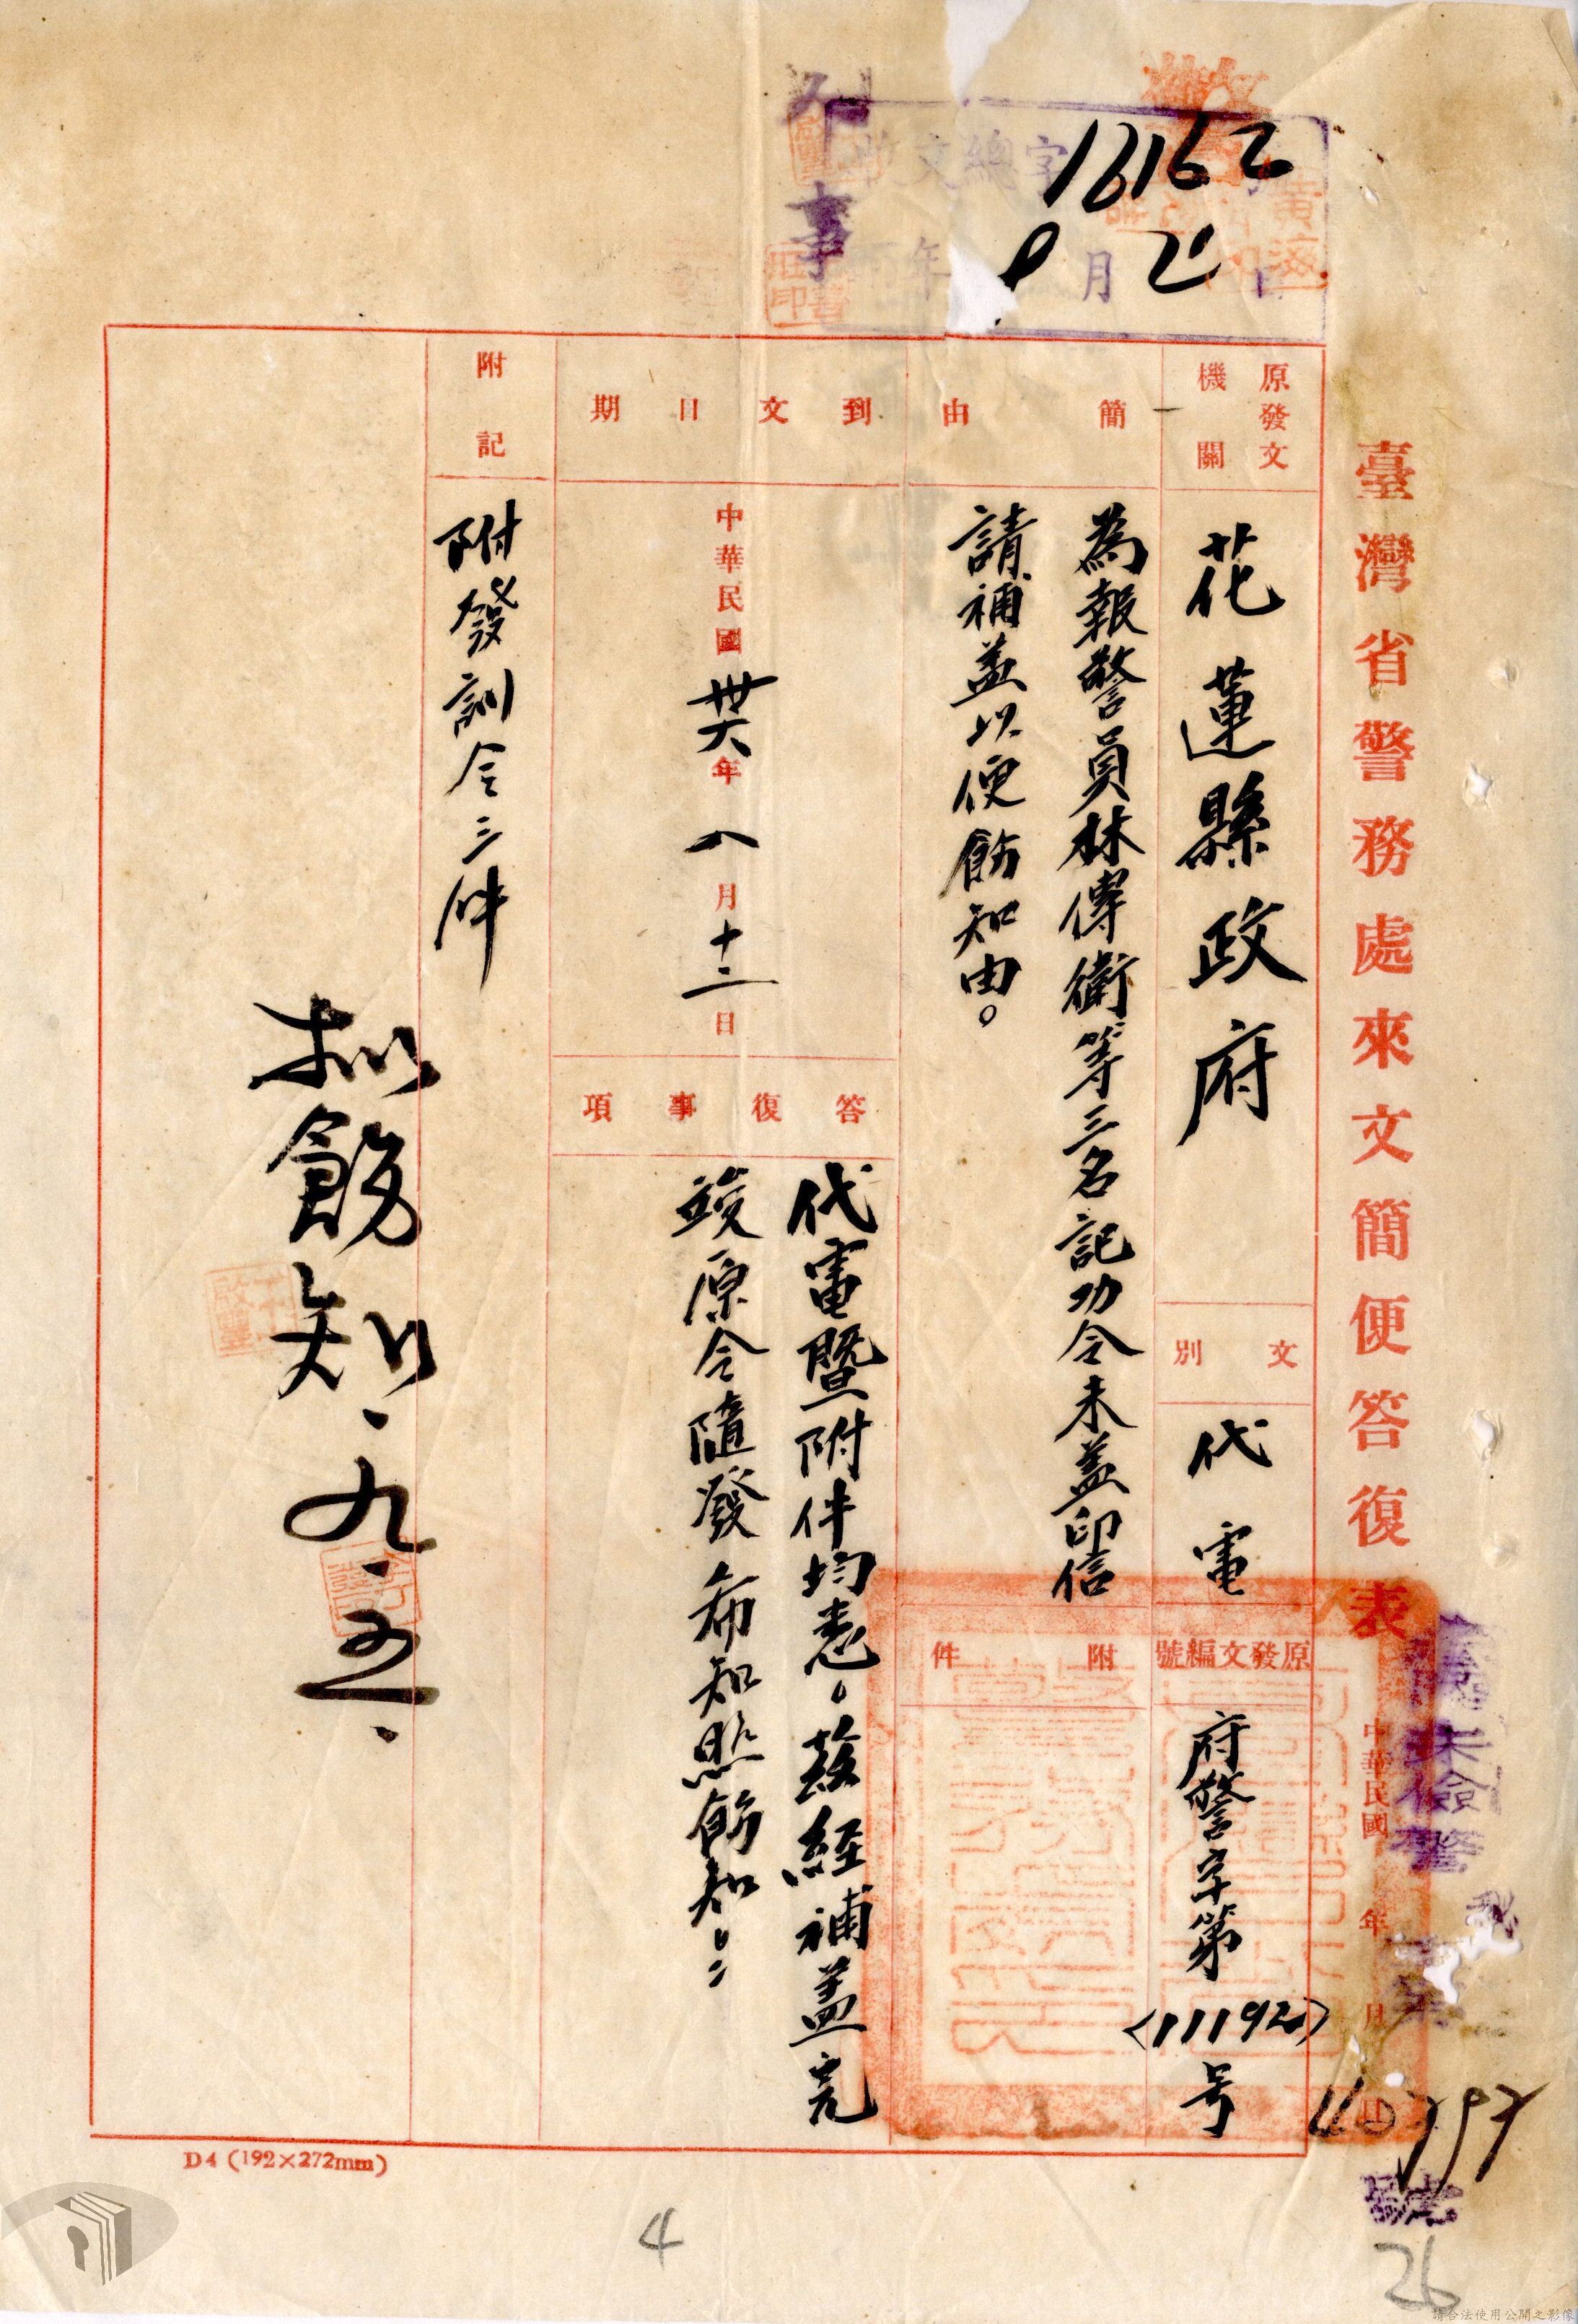 臺灣省警務處來文簡便答復表
中華民國 年 月 日
人事
收文總字 18162
年 月 日
原發文機關
花蓮縣政府
文別
代電
原發文編號
府警字第(11192)号
簡由
為報警員林傳衛等三名記功令未蓋印信
請補蓋以便飭知由。
附件
到文日期
中華民國卅六年八月十二日
答復事項
代電暨附件均悉。茲經補蓋完
竣原令隨發布知照飭知。
附記
附發訓令三件
擬飭知、九、五、
D4 (192×272mm)
4
26
請合法使用公開之影像